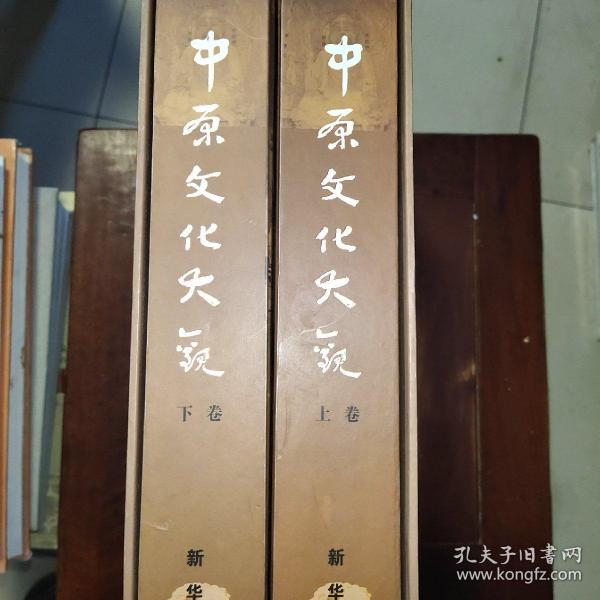 中原文化大觀
下卷
新华
中原文化大觀
上卷
新华
孔夫子旧书网
www.kongfz.com